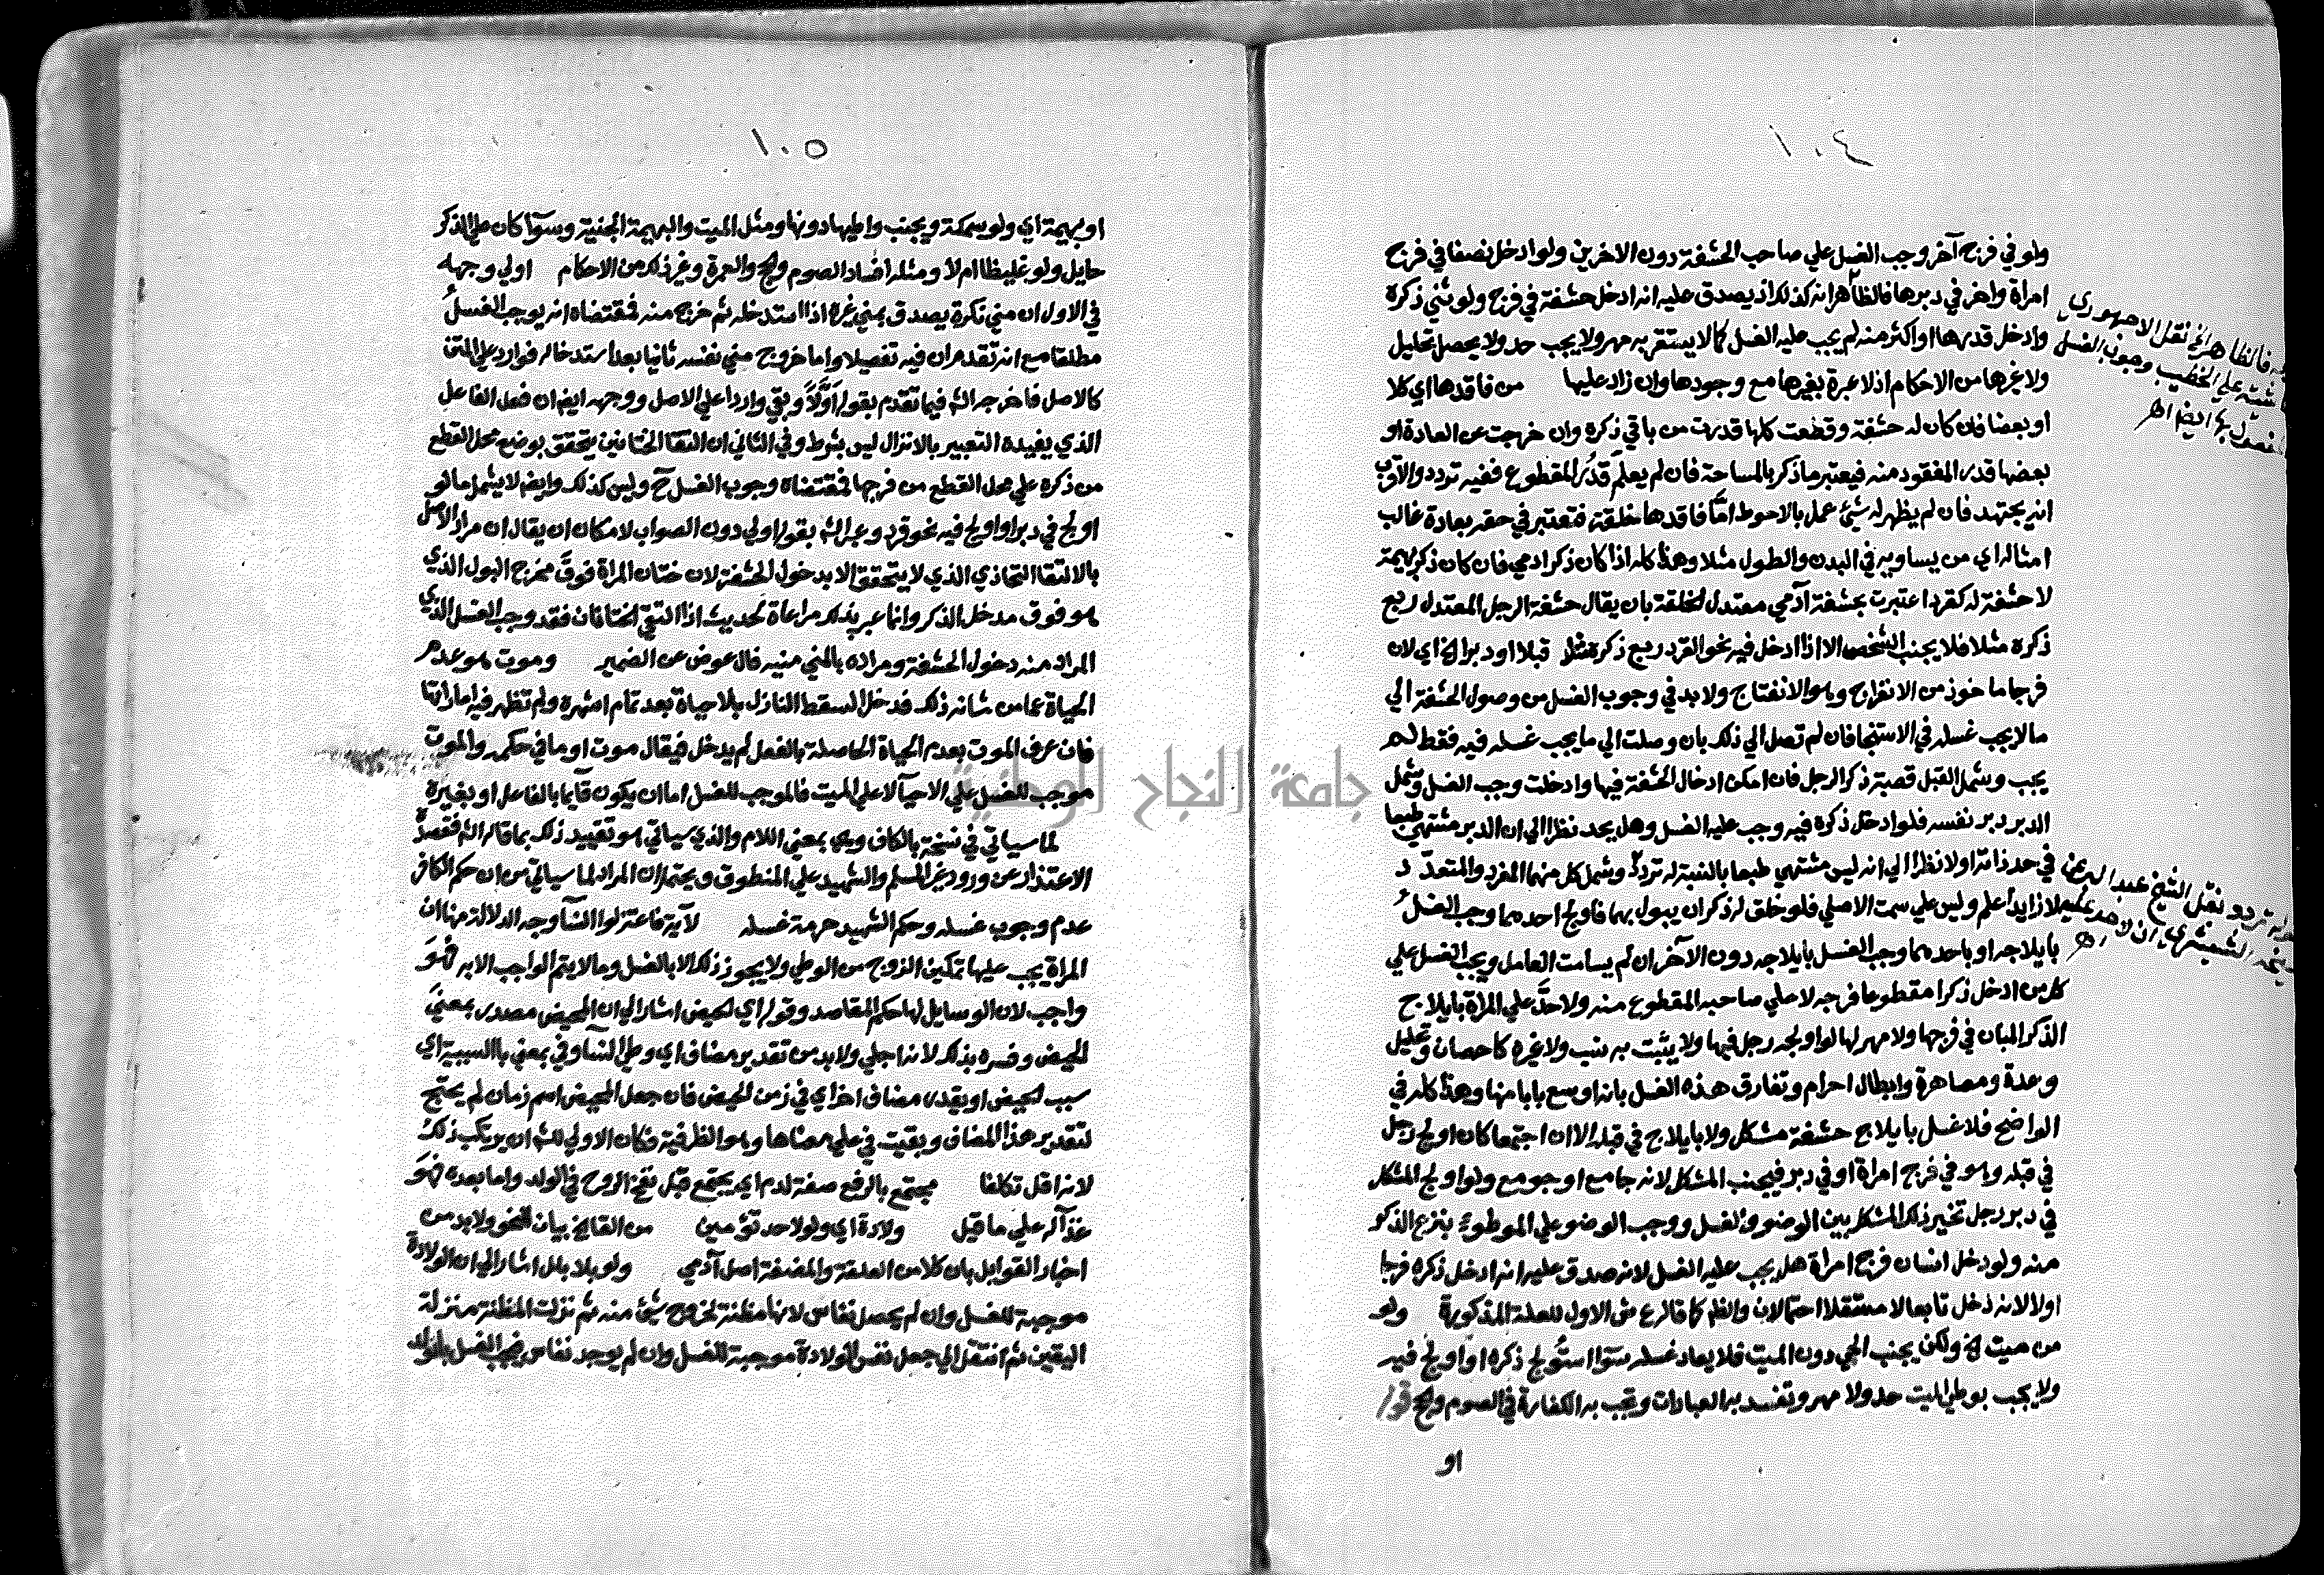 ١٠٤
ولو في فرج آخر وجب الغسل علي صاحب الحشفة دون الاخرين ولو ادخل نصفا في فرج
امراة واخر في دبرها فالظاهر انه كذلك اذ يصدق عليه انه ادخل حشفة في فرج ولو ثني ذكره
وادخل قدرها او اكثر منه لم يجب عليه الغسل كما لا يستقر به مهر ولا يجب حد ولا يحصل تحليل
ولا غيرها من الاحكام اذ لا عبرة بغيرها مع وجودها وان زاد عليها من فاقدها اي كلا
او بعضا فان كان له حشفة وقطعت كلها قدرت من باقي ذكره وان خرجت عن العادة او
بعضها قدر المفقود منه فيعتبر ما ذكر بالمساحة فان لم يعلم قدر المقطوع ففيه تردد والاقرب
انه يجتهد فان لم يظهر له شئ عمل بالاحوط امّا فاقدها خلقة فتعتبر في حقه بعادة غالب
امثاله اي من يساويه في البدن والطول مثلا وهذا كله اذا كان ذكر ادمي فان كان ذكر بهيمة
لا حشفة له كقرد اعتبرت بحشفة آدمي معتدل الخلقة بان يقال حشفة الرجل المعتدل ربع
ذكره مثلا فلا يجنب الشخص الا اذا ادخل فيه نحو القرد ربع ذكره مثلا قبلا او دبرا الخ اي لان
فرجا ماخوذ من الانفراج وهو الانفتاح ولا بد في وجوب الغسل من وصول الحشفة الي
مالا يجب غسله في الاستنجا فان لم تصل الي ذلك بان وصلت الي ما يجب غسله فيه فقط لم
يجب ويشمل القبل قصبة ذكر الرجل فان امكن ادخال الحشفة فيها وادخلت وجب الغسل وشمل
الدبر دبر نفسه فلو ادخل ذكره فيه وجب عليه الغسل وهل يحد نظرا الي ان الدبر مشتهي طبعا
في حد ذاته اولا نظرا الي انه ليس مشتهي طبعا بالنسبة له تردد وشمل كل منهما المفرد والمتعدّد
لا زايد اعلم وليس علي سمت الاصلي فلو خلق له ذكران يبول بهما فاولج احدهما وجب الغسل
بايلاجه او باحدهما وجب الغسل بايلاجه دون الآخر ان لم يسامت العامل ويجب الغسل علي
كل من ادخل ذكرا مقطوعا فرجه لا علي صاحبه المقطوع منه ولا حدّ علي المراة بايلاج
الذكر المبان في فرجها ولا مهر لها لو اولجه رجل فيها ولا يثبت به نسب ولا غيره كاحصان وتحليل
وعدة ومصاهرة وابطال احرام وتفارق هذه الغسل بانه اوسع بابا منها وهذا كله في
الواضح فلا غسل بايلاج حشفة مشكل ولا بايلاج في قبله الا ان اجتمعا كان اولج رجل
في قبله وهو في فرج امراة او في دبر فيجنب المشكل لانه جامع او جومع ولو اولج المشكل
في دبر رجل تخير ذلك المشكل بين الوضو والغسل ووجب الوضو علي الموطوء بنزع الذكر
منه ولو دخل انسان فرج امراة هل يجب عليه الغسل لانه صدق عليه انه ادخل ذكره فرجا
اولا لانه دخل تابعا لا مستقلا احتمالان والظم كما قاله ع ش الاول للعلة المذكورة ولو
من ميت الخ ولكن يجنب الحي دون الميت فلا يعاد غسله سوا استولج ذكره او اولج فيه
ولا يجب بوطي الميت حد ولا مهر وتفسد به العبادات وتجب به الكفارة في الصوم والحج قوله
او
فالظاهر الخ نقل الاجهوري
علي الخطيب وجوب الغسل
بها ايضا اهـ
تردد نقل الشيخ عبد البر عن
الشبشيري ان لا حد عليه
اهـ
١٠٥
او بهيمة اي ولو سمكة ويجنب واطيها دونها ومثل الميت والبهيمة الجنية وسوآ كان علي الذكر
حايل ولو غليظا ام لا ومثله افساد الصوم والحج والعمرة وغير ذلك من الاحكام اولي وجهه
في الاول ان مني نكرة يصدق بمني غيره اذا استدخله ثم خرج منه فمقتضاه انه يوجب الغسل
مطلقا مع انه تقدم ان فيه تفصيلا واما خروج مني نفسه ثانيا بعد استدخاله فوارد علي المتن
كالاصل فاخرجه الش فيما تقدم بقوله اوّلاً وبقي واردا علي الاصل ووجهه ايضا ان فعل الفاعل
الذي يفيده التعبير بالانزال ليس بشرط وفي الثاني ان التقا الختانين يتحقق بوضع محل القطع
من ذكره علي محل القطع من فرجها فمقتضاه وجوب الغسل ح وليس كذلك وايضا لا يشمل ما لو
اولج في دبر او اولج فيه نحو قرد وعبر الش بقوله اولي دون الصواب لامكان ان يقال ان مراد الاصل
بالالتقا التحاذي الذي لا يتحقق الا بدخول الحشفة لان ختان المراة فوق مخرج البول الذي
هو فوق مدخل الذكر وانما عبر بذلك مراعاة لحديث اذا التقي الختانان فقد وجب الغسل الذي
المراد منه دخول الحشفة ومراده بالمني منيه فال عوض عن الضمير وموت هو عدم
الحياة عما من شانه ذلك فدخل السقط النازل بلا حياة بعد تمام اشهره ولم تظهر فيه اماراتها
فان عرف الموت بعدم الحياة الحاصلة بالفعل لم يدخل فيقال موت او ما في حكمه والموت
موجب للغسل علي الاحيآ لا علي الميت فالموجب للغسل اما ان يكون قآيما بالفاعل او بغيره
لما سياتي في نسخة بالكاف وهي بمعني اللام والذي سياتي هو تقييد ذلك بما قاله الش فقصده
الاعتذار عن ورود غير المسلم والشهيد علي المنطوق ويحتمل ان المراد لما سياتي من ان حكم الكافر
عدم وجوب غسله وحكم الشهيد حرمة غسله لآية فاعتزلوا النسآ وجه الدلالة منها ان
المراة يجب عليها تمكين الزوج من الوطي ولا يجوز ذلك الا بالغسل وما لا يتم الواجب الا به فهو
واجب لان الوسايل لها حكم المقاصد وقوله اي الحيض اشار الي ان المحيض مصدر بمعني
الحيض وفسره بذلك لانه اجلي ولا بد من تقدير مضاف اي وطي النسآ وفي بمعني با السببية اي
سبب الحيض او يقدر مضاف اخر اي في زمن الحيض فان جعل المحيض اسم زمان لم يحتج
لتقدير هذا المضاف وبقيت في علي معناها وهو الظرفية فكان الاولي للش ان يرتكب ذلك
لانه اقل تكلفا مجتمع بالرفع صفة لدم اي يجتمع قبل نفخ الروح في الولد واما بعده فهو
غذآ له علي ما قيل ولادة اي ولو لاحد توءمين من القا الخ بيان للنحو ولا بد من
اخبار القوابل بان كلا من العلقة والمضغة اصل آدمي ولو بلا بلل اشار الي ان الولادة
موجبة للغسل وان لم يحصل نفاس لانها مظنة لخروج شئ منه ثم نزلت المظنة منزلة
اليقين ثم انتقل الي جعل نفس الولادة موجبة للغسل وان لم يوجد نفاس فيجب الغسل بالولد
جامعة النجاح الوطنية